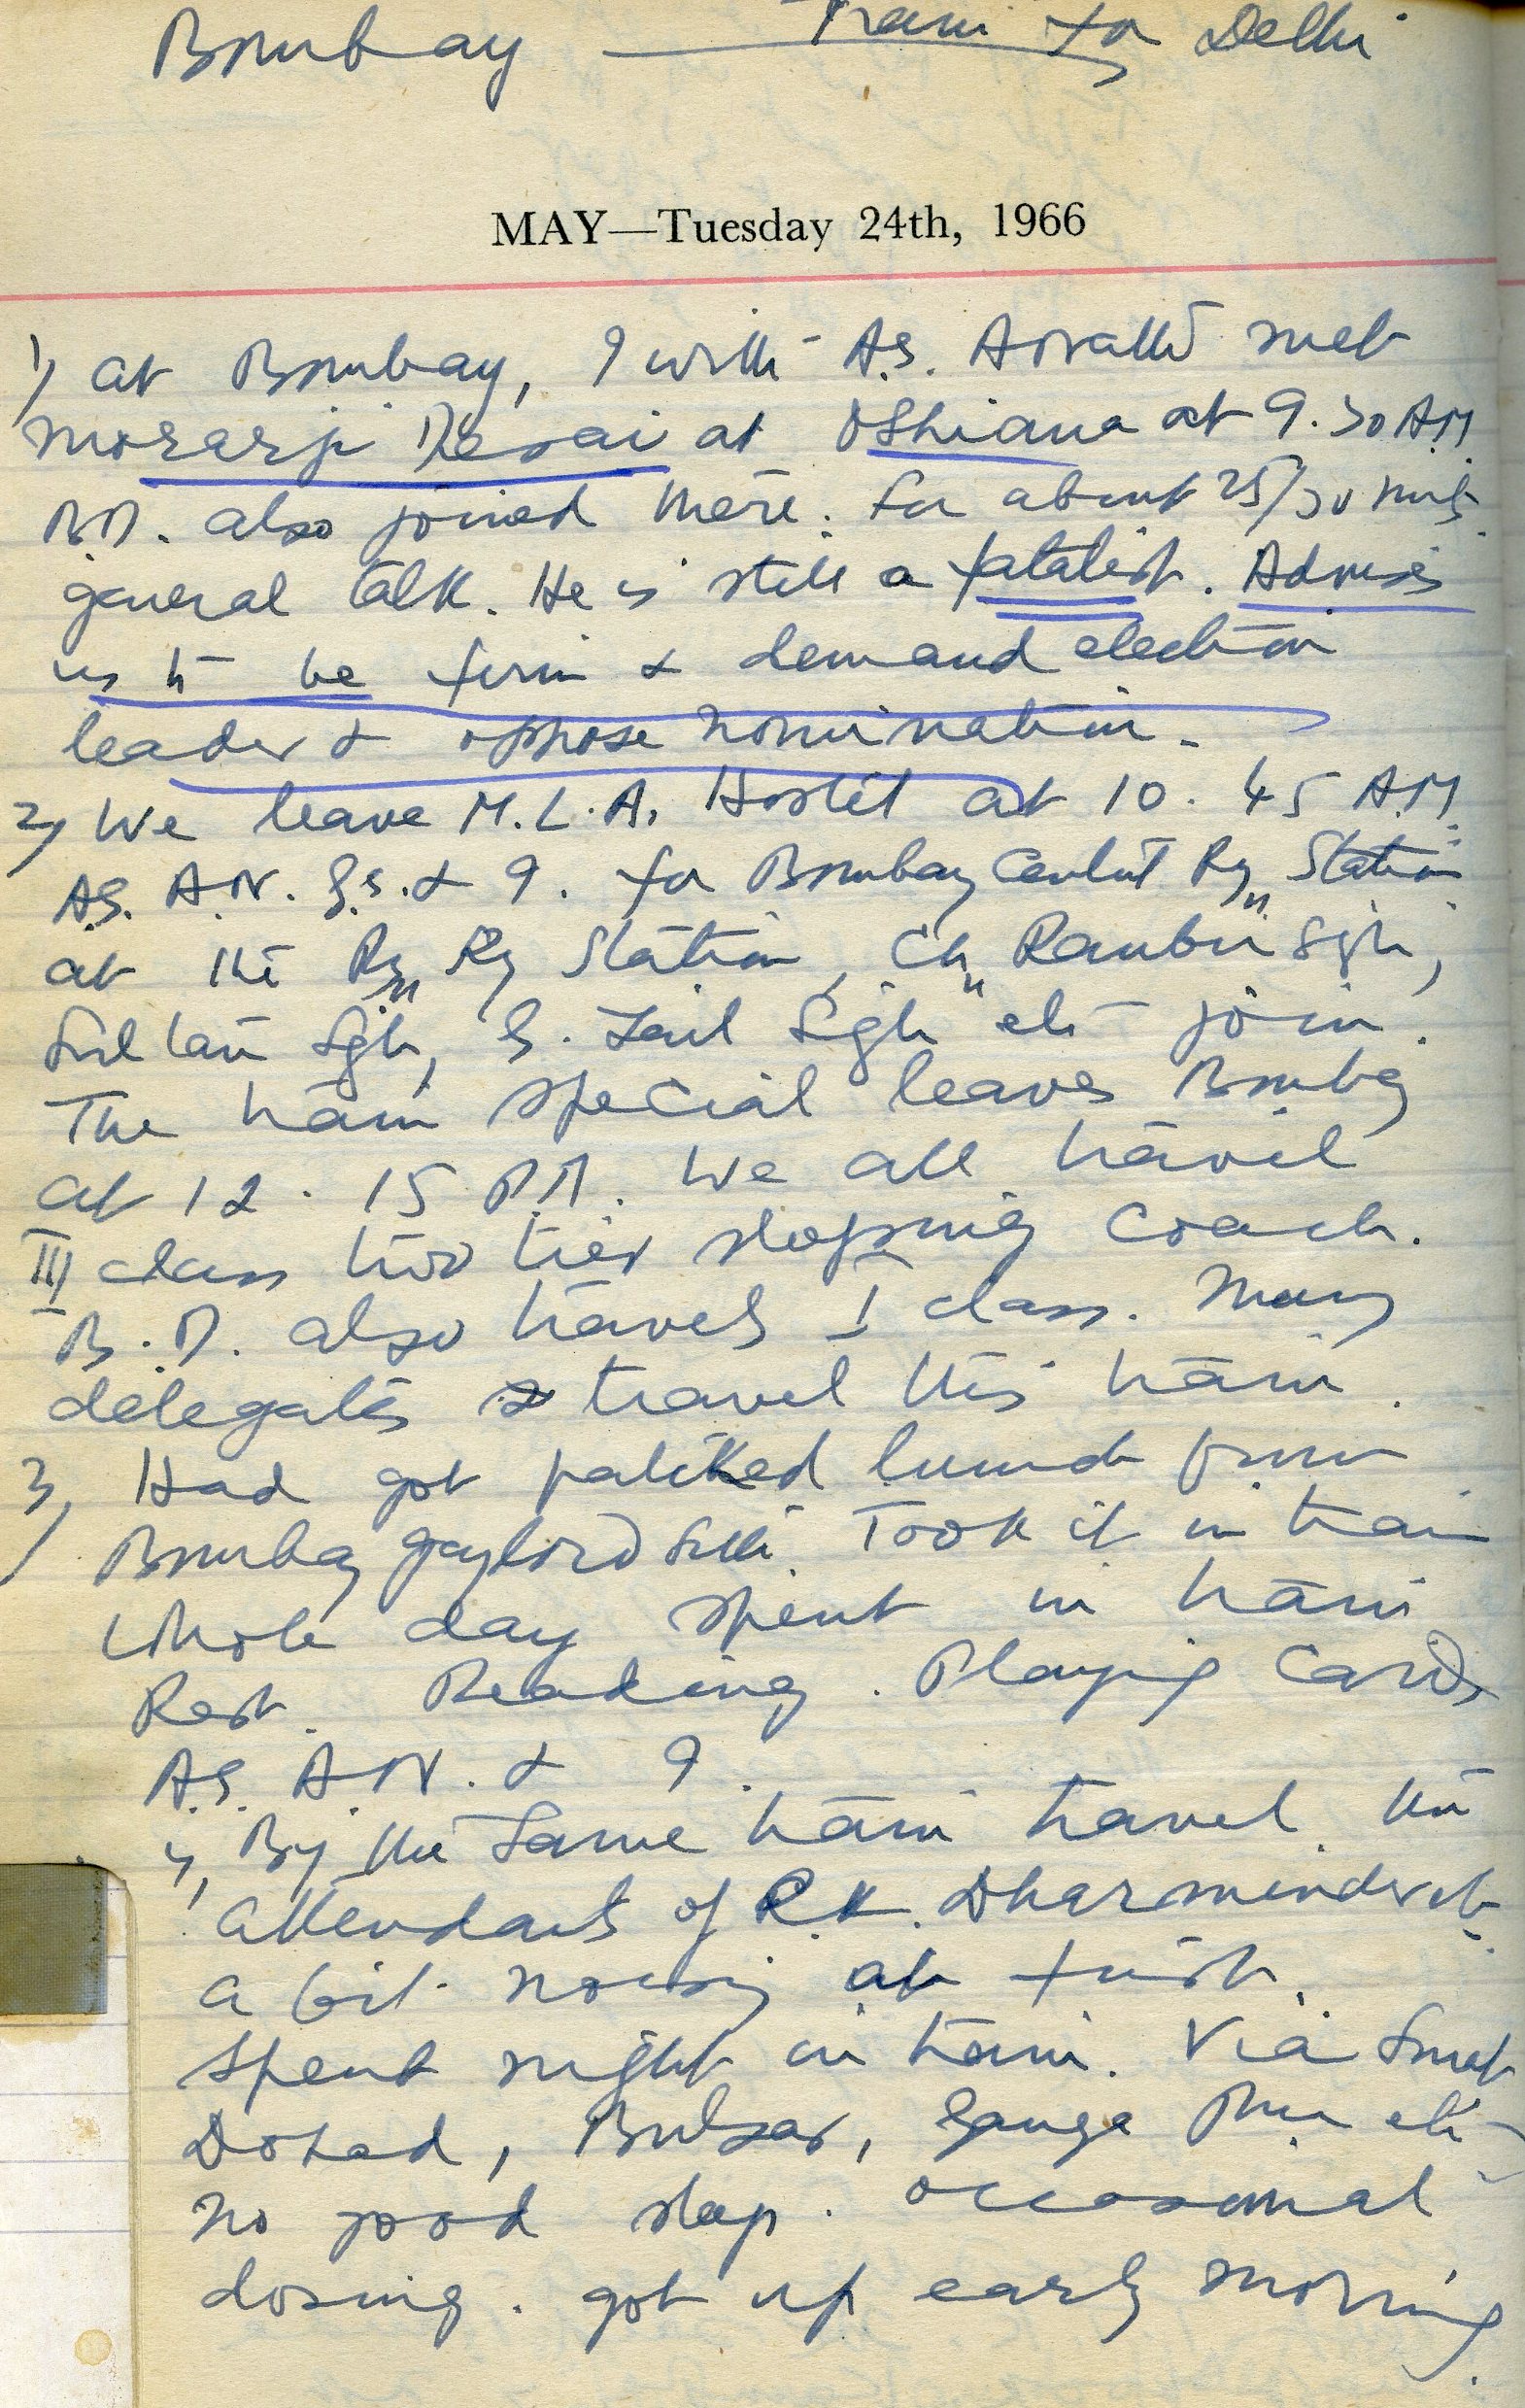 Bombay — Train to Delhi
MAY—Tuesday 24th, 1966
1) at Bombay, I with A.S. met
Morarji Desai at Oshiana at 9.30 A.M
B.D. also joined there. for about 25/30 mts
general talk. He is still a fatalist. Advises
us to be firm & demand election
leader & oppose nomination.
2) We leave M.L.A. Hostel at 10.45 A.M.
A.S. A.N. S.S. & I. for Bombay Central Ry Station
at the Ry Ry Station, Ch Ranbir Sgh,
Sultan Sgh, S. Sigh etc join.
The train special leaves Bombay
at 12.15 P.M. We all travel
III class two tier sleeping coach.
B.D. also travels I class. Many
delegates travel this train.
3) Had got packed lunch from
Bombay Gaylord. Took it in train
Whole day spent in train
Rest. Reading. Playing Cards
A.S. A.N. & I.
4) By the same train travel the
attendants of R.K. Dharminder etc.
a bit noisy at first.
Spent night in train. Via Surat
Dohad, Bulsar, Ganga Pur etc
No good sleep. occasional
dosing. got up early morning.